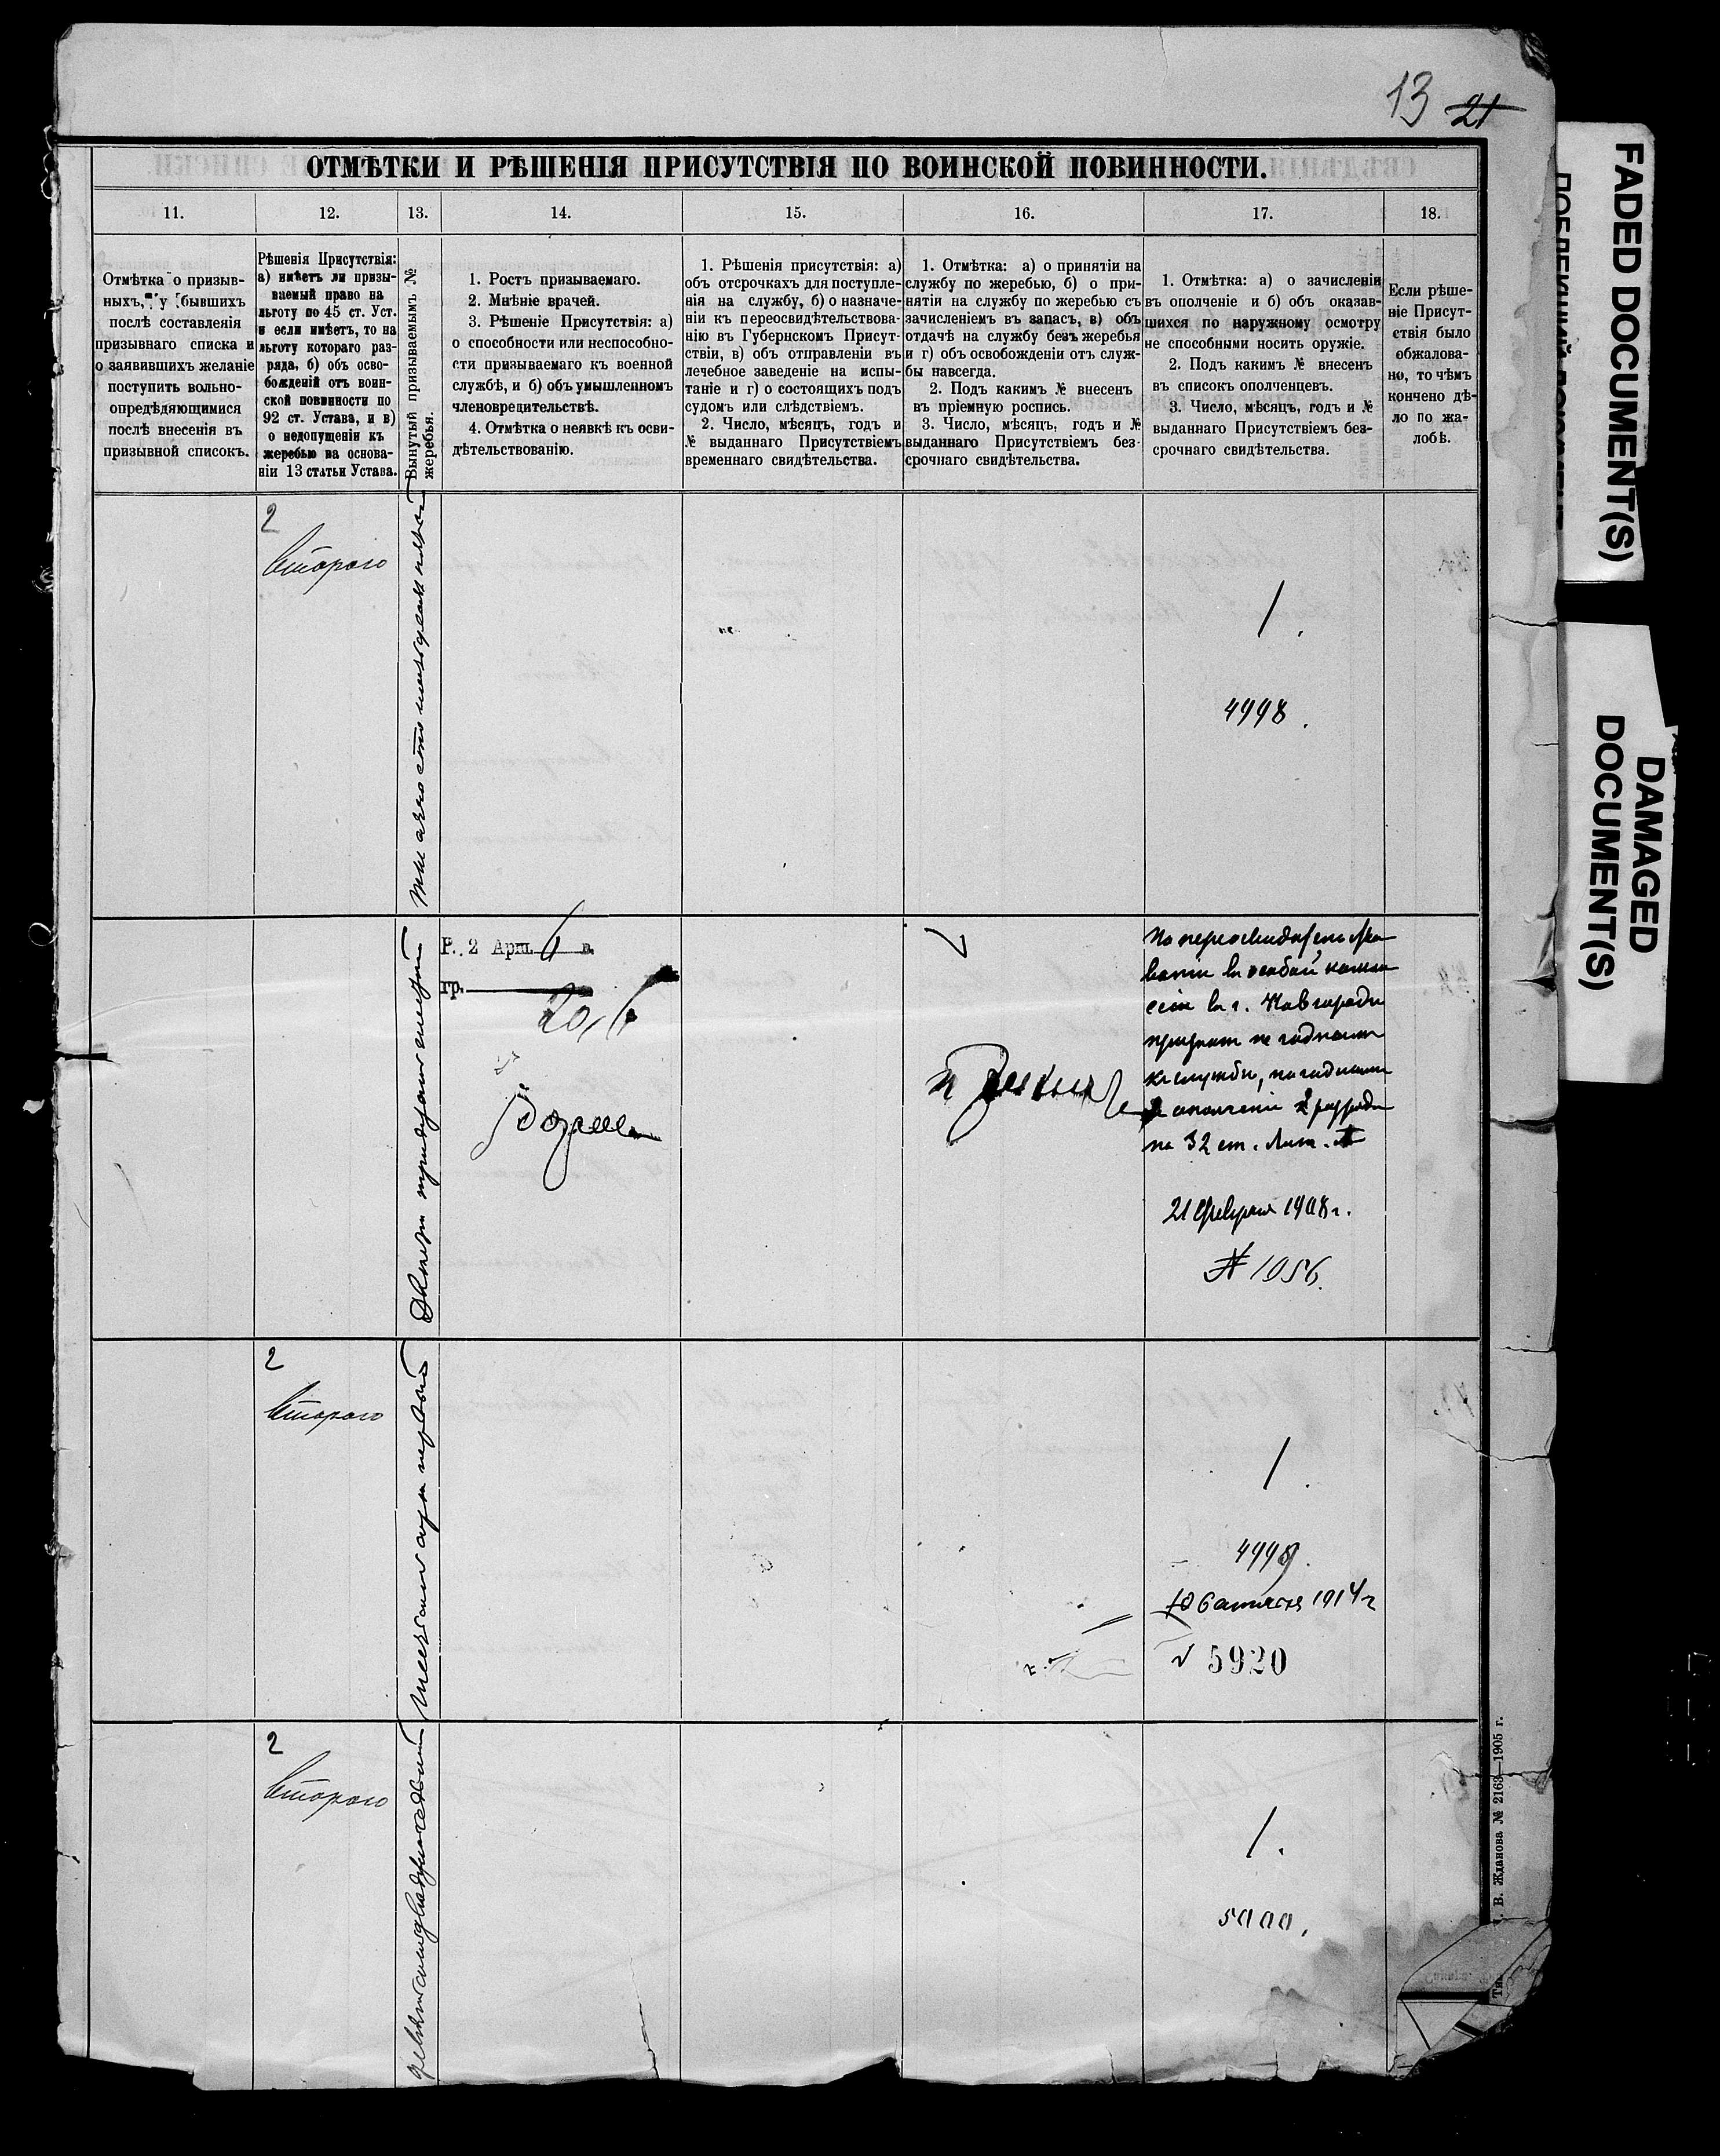 13 21
ОТМѢТКИ И РѢШЕНІЯ ПРИСУТСТВІЯ ПО ВОИНСКОЙ ПОВИННОСТИ.
11.
12.
13.
14.
15.
16.
17.
18.
Отмѣтка о призыв-
ныхъ, у бывшихъ
послѣ составленія
призывнаго списка и
о заявившихъ желаніе
поступить вольно-
опредѣляющимися
послѣ внесенія въ
призывной списокъ.
Рѣшенія Присутствія:
а) имѣетъ ли призы-
ваемый право на
льготу по 45 ст. Уст.
и если имѣетъ, то на
льготу котораго раз-
ряда, б) объ осво-
божденій отъ воин-
ской повинности по
92 ст. Устава, и в)
о недопущеніи къ
жеребью на основа-
ніи 13 статьи Устава.
Вынутый призываемымъ №
жеребья.
1. Ростъ призываемаго.
2. Мнѣніе врачей.
3. Рѣшеніе Присутствія: а)
о способности или неспособно-
сти призываемаго къ военной
службѣ, и б) объ умышленномъ
членовредительствѣ.
4. Отмѣтка о неявкѣ къ осви-
дѣтельствованію.
1. Рѣшенія присутствія: а)
объ отсрочкахъ для поступле-
нія на службу, б) о назначе-
ніи къ переосвидѣтельствова-
нію въ Губернскомъ Присут-
ствіи, в) объ отправленіи въ
лечебное заведеніе на испы-
таніе и г) о состоящихъ подъ
судомъ или слѣдствіемъ.
2. Число, мѣсяцъ, годъ и
№ выданнаго Присутствіемъ
временнаго свидѣтельства.
1. Отмѣтка: а) о принятіи на
службу по жеребью, б) о при-
нятіи на службу по жеребью съ
зачисленіемъ въ запасъ, в) объ
отдачѣ на службу безъ жеребья
и г) объ освобожденіи отъ служ-
бы навсегда.
2. Подъ какимъ № внесенъ
въ пріемную роспись.
3. Число, мѣсяцъ, годъ и №
выданнаго Присутствіемъ без-
срочнаго свидѣтельства.
1. Отмѣтка: а) о зачисленіи
въ ополченіе и б) объ оказав-
шихся по наружному осмотру
не способными носить оружіе.
2. Подъ какимъ № внесенъ
въ списокъ ополченцевъ.
3. Число, мѣсяцъ, годъ и №
выданнаго Присутствіемъ без-
срочнаго свидѣтельства.
Если рѣше-
ніе Присут-
ствія было
обжалова-
но, то чѣмъ
кончено дѣ-
ло по жа-
лобѣ.
2
Второго
1.
4998.
Двѣсти тридцать
Р. 2 Арш. 6 в.
гр.
20,6
Годенъ
Принятъ
По переосвидѣтельство
ваніи въ особой комми
сіи въ г. Новгородѣ
признанъ не годнымъ
къ службѣ, но годнымъ
въ ополченіи 2 разряда
по 32 ст. Лит. А
21 Февраля 1908 г.
№ 1056.
2
Второго
первый
1.
4999.
1914 г
5920
2
Второго
1.
5000.
В. Жданова № 2163—1905 г.
FADED DOCUMENT(S)
DAMAGED
DOCUMENT(S)